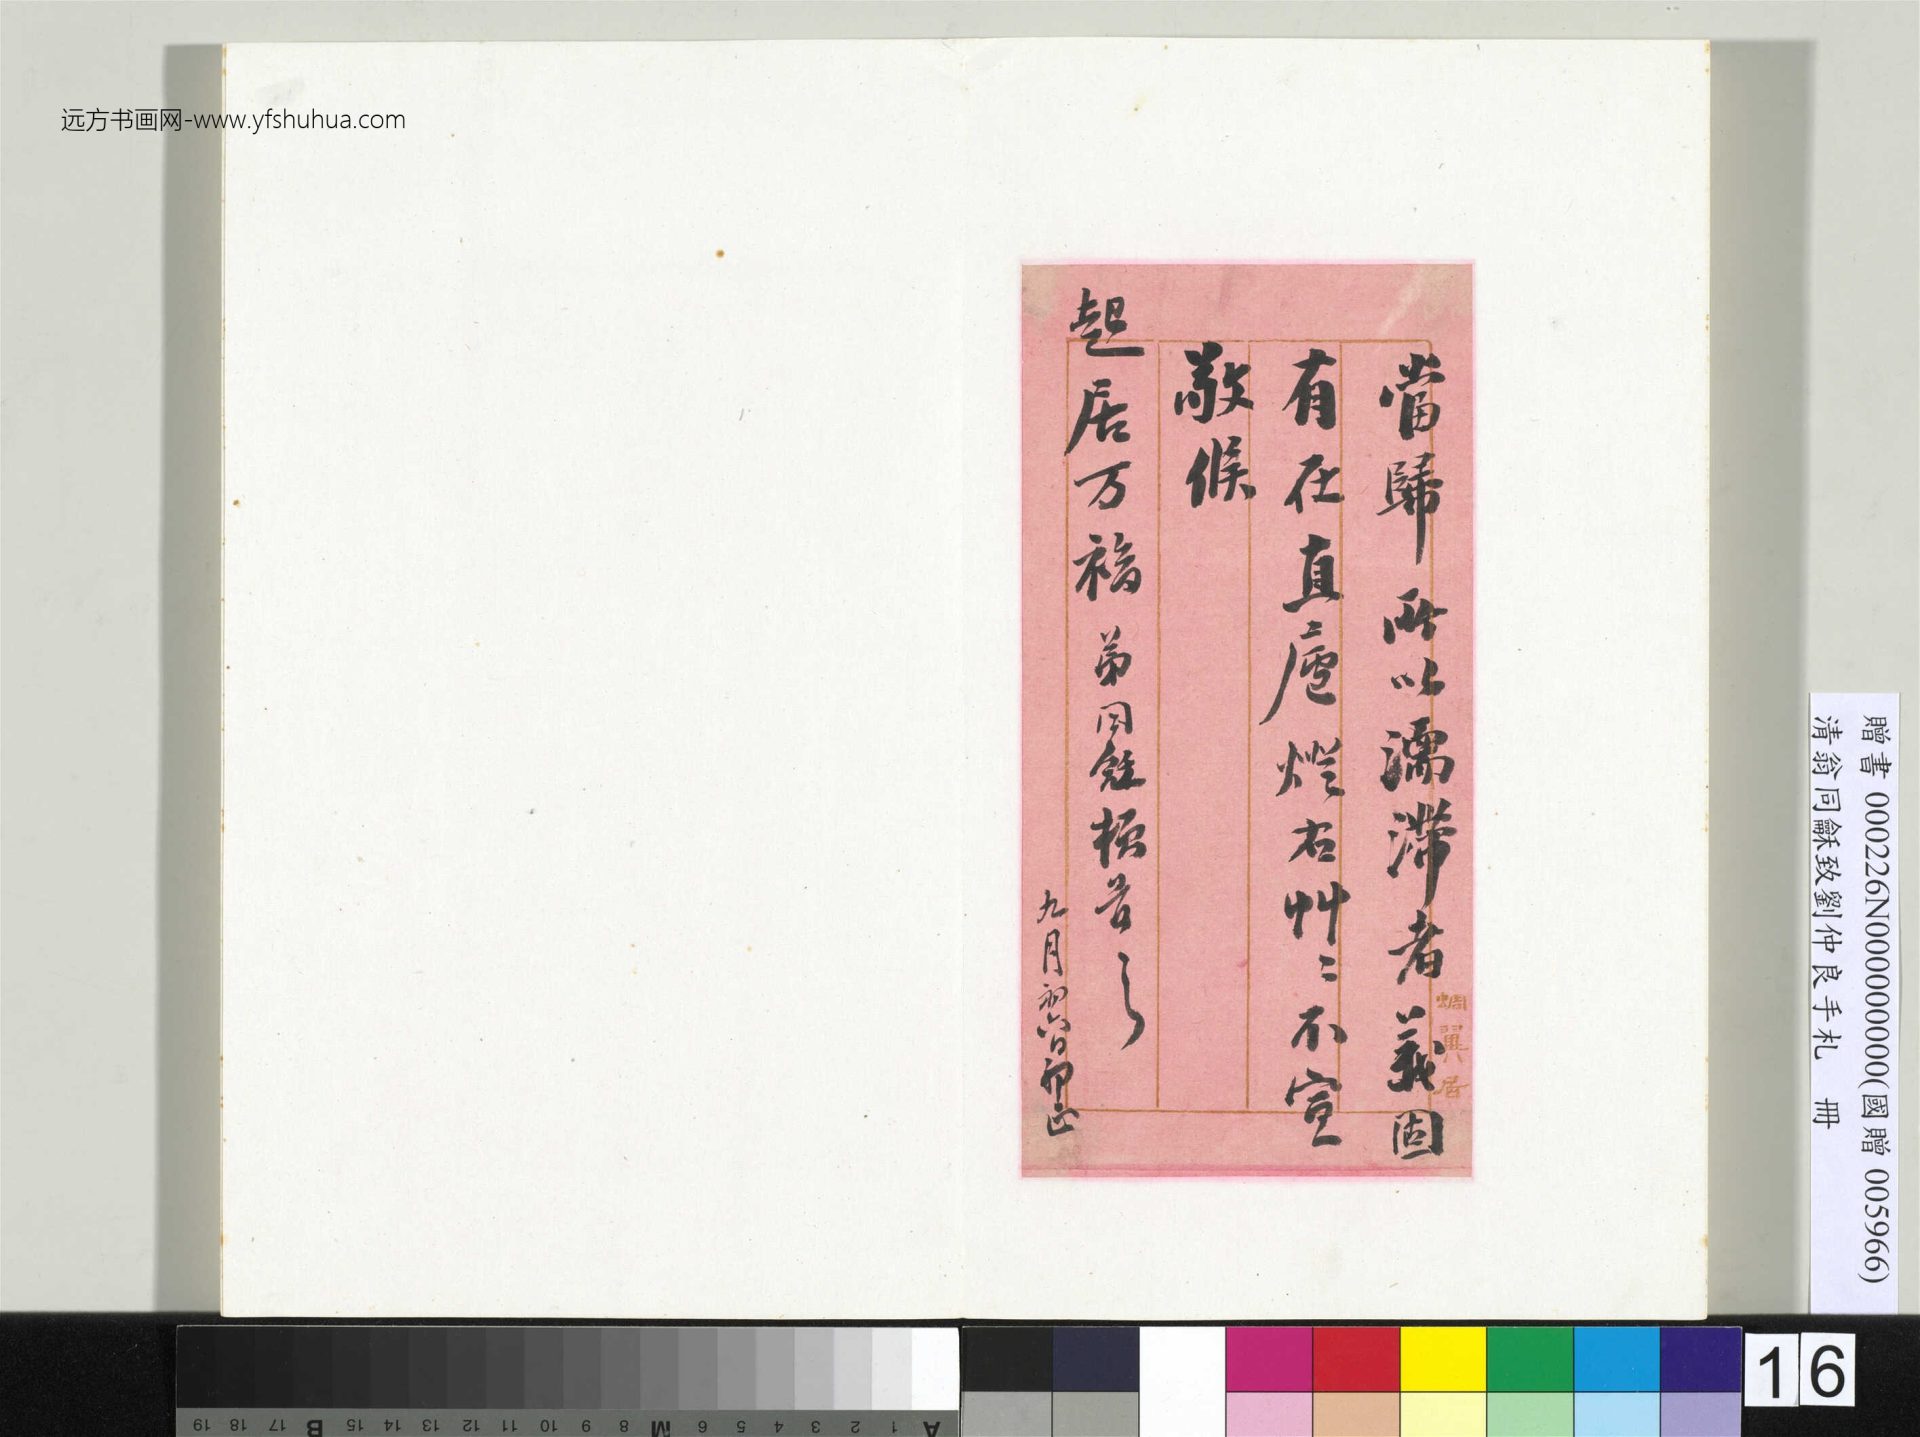 远方书画网-www.yfshuhua.com
當歸所以濡滯者義固
有在直廬燈右艸二不宣
敬候
起居万福弟同龢頓首
九月初六日卯正
蜩翼居
贈書 000226N000000000(國贈 005966)
清翁同龢致劉仲良手札 冊
16
A 1 2 3 4 5 6 M 8 9 10 11 12 13 14 15 B 17 18 19